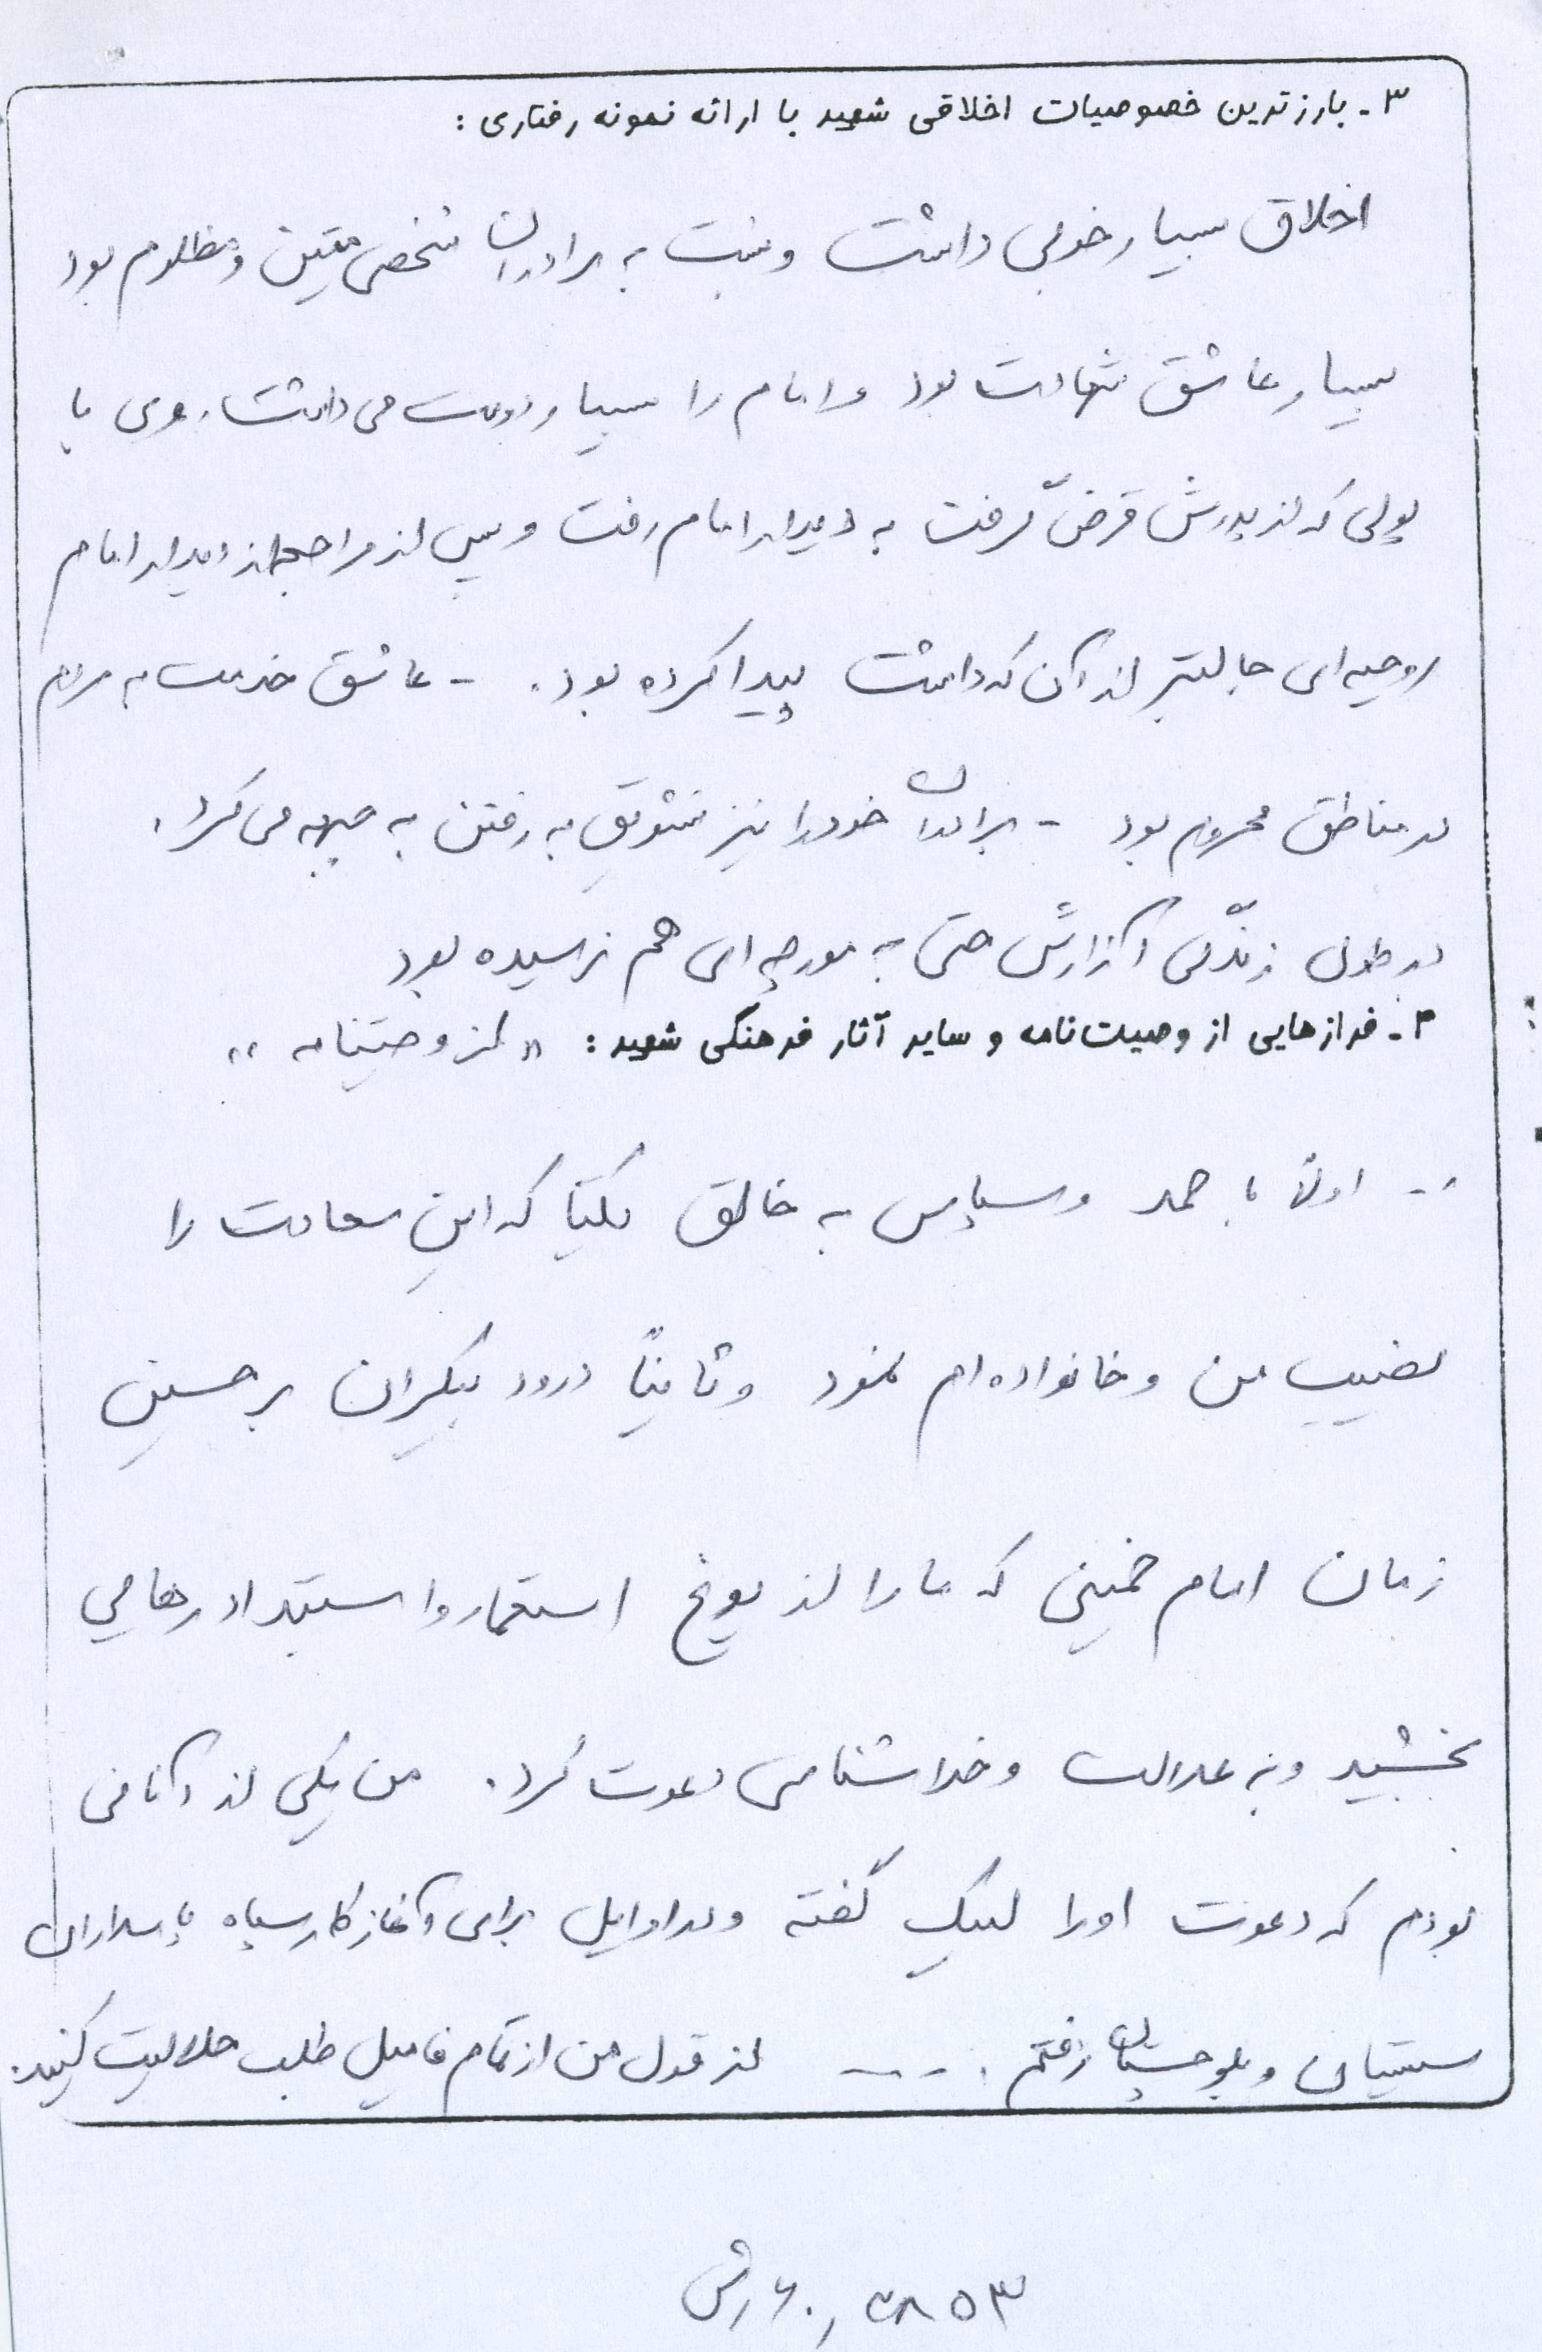 ۳ـ بارزترین خصوصیات اخلاقی شهید با ارائه نمونه رفتاری :
اخلاق بسیار خوبی داشت و نسبت به برادران شخص متین و مظلوم بود
بسیار عاشق شهادت بود و امام را بسیار دوست می داشت. وی با
پولی که از پدرش قرض گرفت به دیدار امام رفت و پس از مراجعه از دیدار امام
روحیه ای جالبتر از آن که داشت پیدا کرده بود. - عاشق خدمت به مردم
در مناطق محروم بود - برادران خود را نیز تشویقِ به رفتن به جبهه می کرد.
در طول زندگی آزارش حتی به مورچه ای هم نرسیده بود
۴ـ فرازهایی از وصیت‌نامه و سایر آثار فرهنگی شهید : « از وصیتنامه »
... اولاً با حمد و سپاس به خالق یکتا که این سعادت را
نصیب من و خانواده ام نمود و ثانیاً درود بیکران بر حسینِ
زمان امام خمینی که ما را از یوغ استعمار و استبداد رهایی
بخشید و به عدالت و خدا شناسی دعوت کرد. من یکی از آنانی
بودم که دعوت او را لبیک گفته و در اوایل برای آغاز کار سپاه پاسداران
سیستان و بلوچستان رفتم. .... از قول من از تمام فامیل طلب حلالیت کنید.